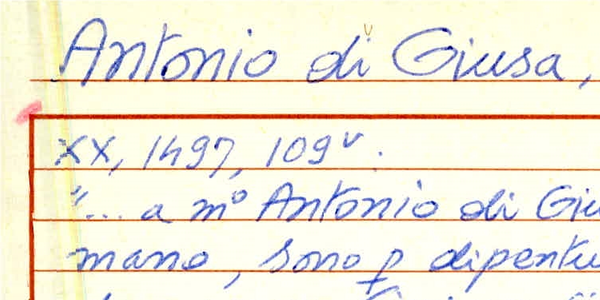 Antonio di Giusa,
XX, 1497, 109v.
"... a mo Antonio di Giu
mano, sono p dipentu